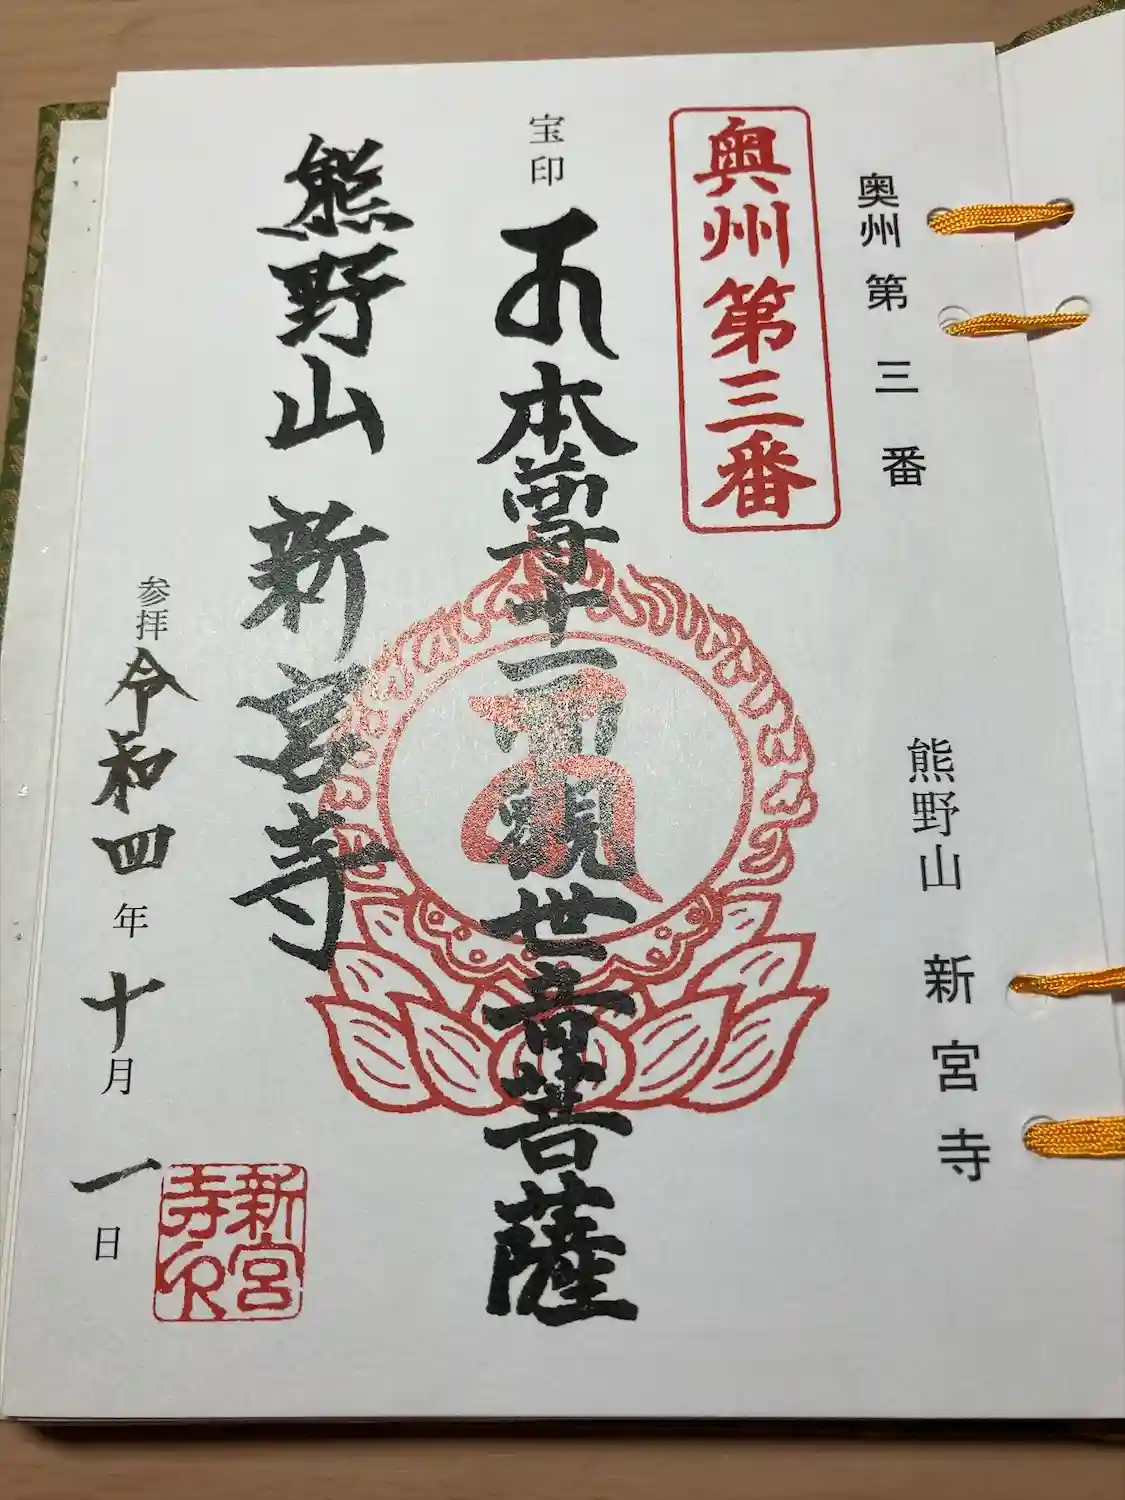 奥州第三番
熊野山 新宮寺
奥州第三番
宝印
本尊十一面観世音菩薩
熊野山 新宮寺
参拝 令和四年十月一日
新宮寺印